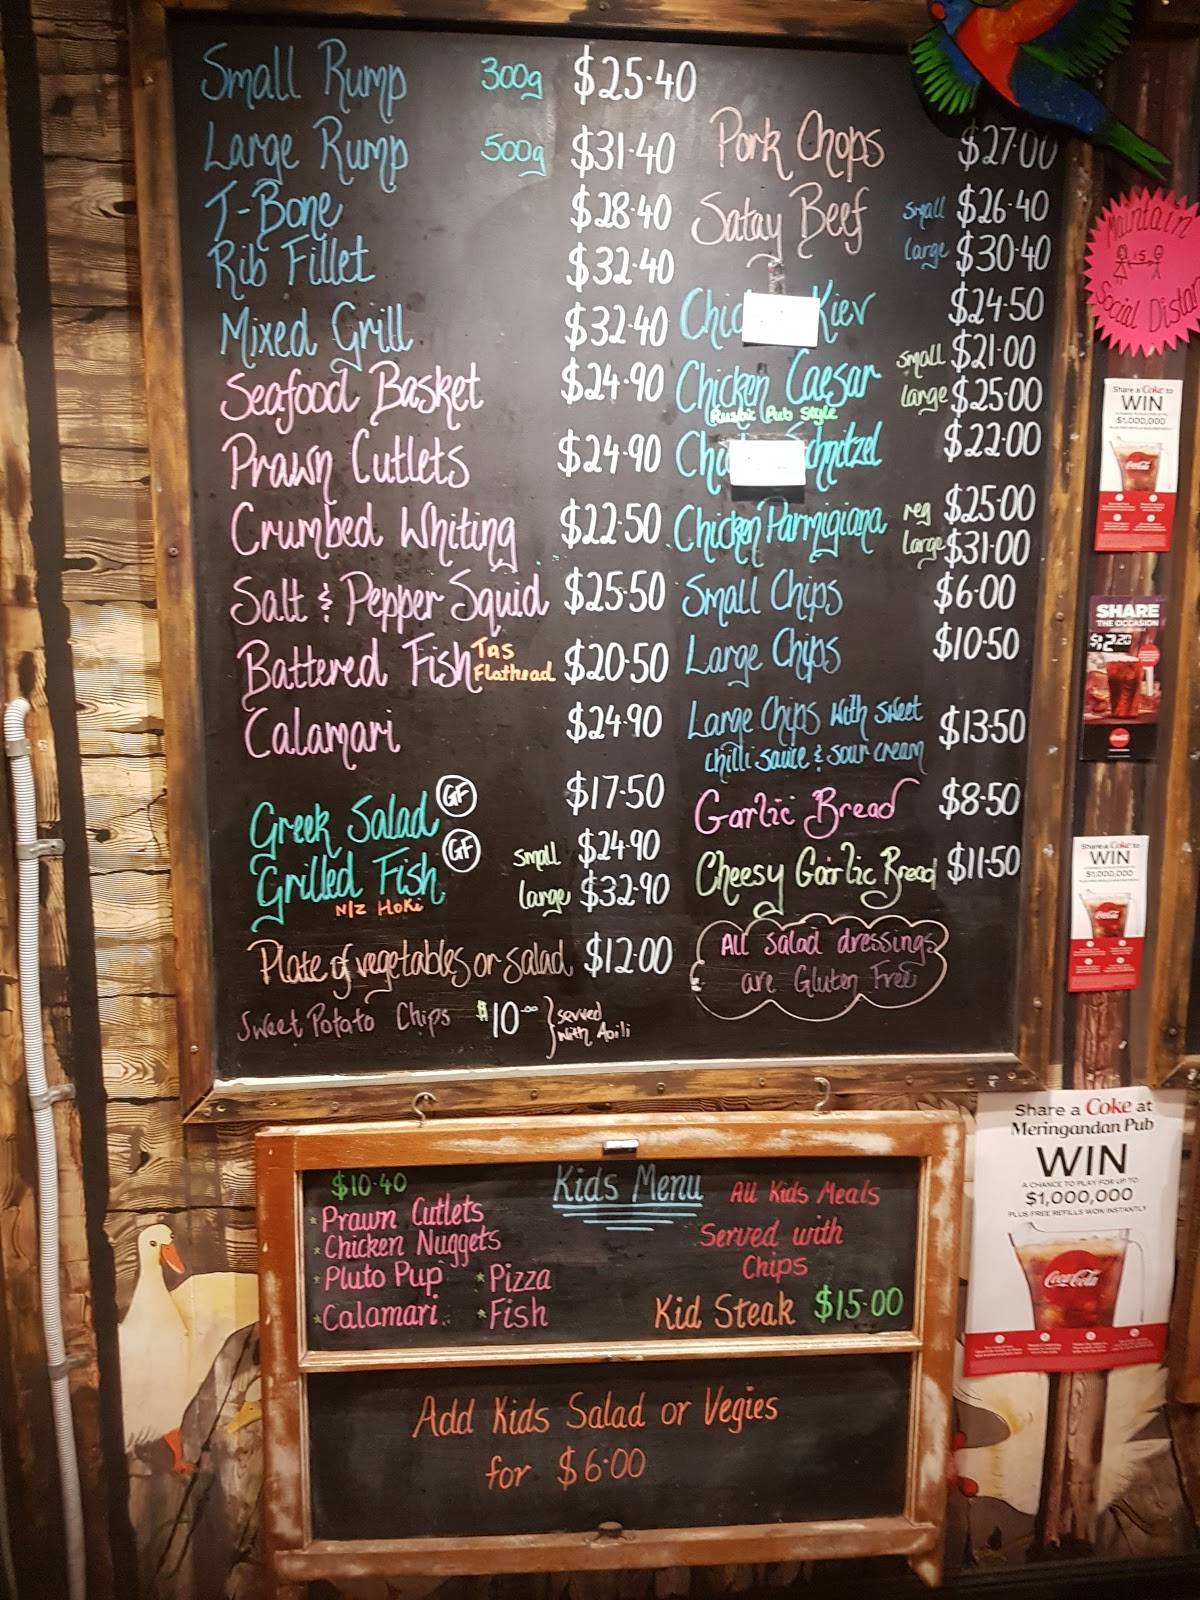 Small Rump 300g $25.40
Large Rump 500g $31.40
T-Bone $28.40
Rib Fillet $32.40
Mixed Grill $32.40
Seafood Basket $24.90
Prawn Cutlets $24.90
Crumbed Whiting $22.50
Salt & Pepper Squid $25.50
Battered Fish Tas Flathead $20.50
Calamari $24.90
Greek Salad GF $17.50
Grilled Fish GF small $24.90
N/Z Hoki large $32.90
Plate of vegetables or salad $12.00
Sweet Potato Chips $10.00 } served with Aoili
Pork Chops $27.00
Satay Beef small $26.40
large $30.40
Kiev $24.50
Chicken Caesar small $21.00
large $25.00
Rustic Pub Style
Schnitzel $22.00
Chicken Parmigiana reg $25.00
large $31.00
Small Chips $6.00
Large Chips $10.50
Large Chips with sweet
chilli sauce & sour cream $13.50
Garlic Bread $8.50
Cheesy Garlic Bread $11.50
All salad dressings
are Gluten Free
Kids Menu
$10.40
* Prawn Cutlets
* Chicken Nuggets
* Pluto Pup * Pizza
* Calamari * Fish
All Kids Meals
Served with
Chips
Kid Steak $15.00
Add Kids Salad or Vegies
for $6.00
Maintain
is
Social
Share a Coke to
WIN
$1,000,000
Coca-Cola
SHARE
THE OCCASION
$12.20
Coca-Cola
Share a Coke to
WIN
$1,000,000
Coca-Cola
Share a Coke at
Meringandan Pub
WIN
A CHANCE TO PLAY FOR UP TO
$1,000,000
PLUS FREE REFILLS WON INSTANTLY
Coca-Cola